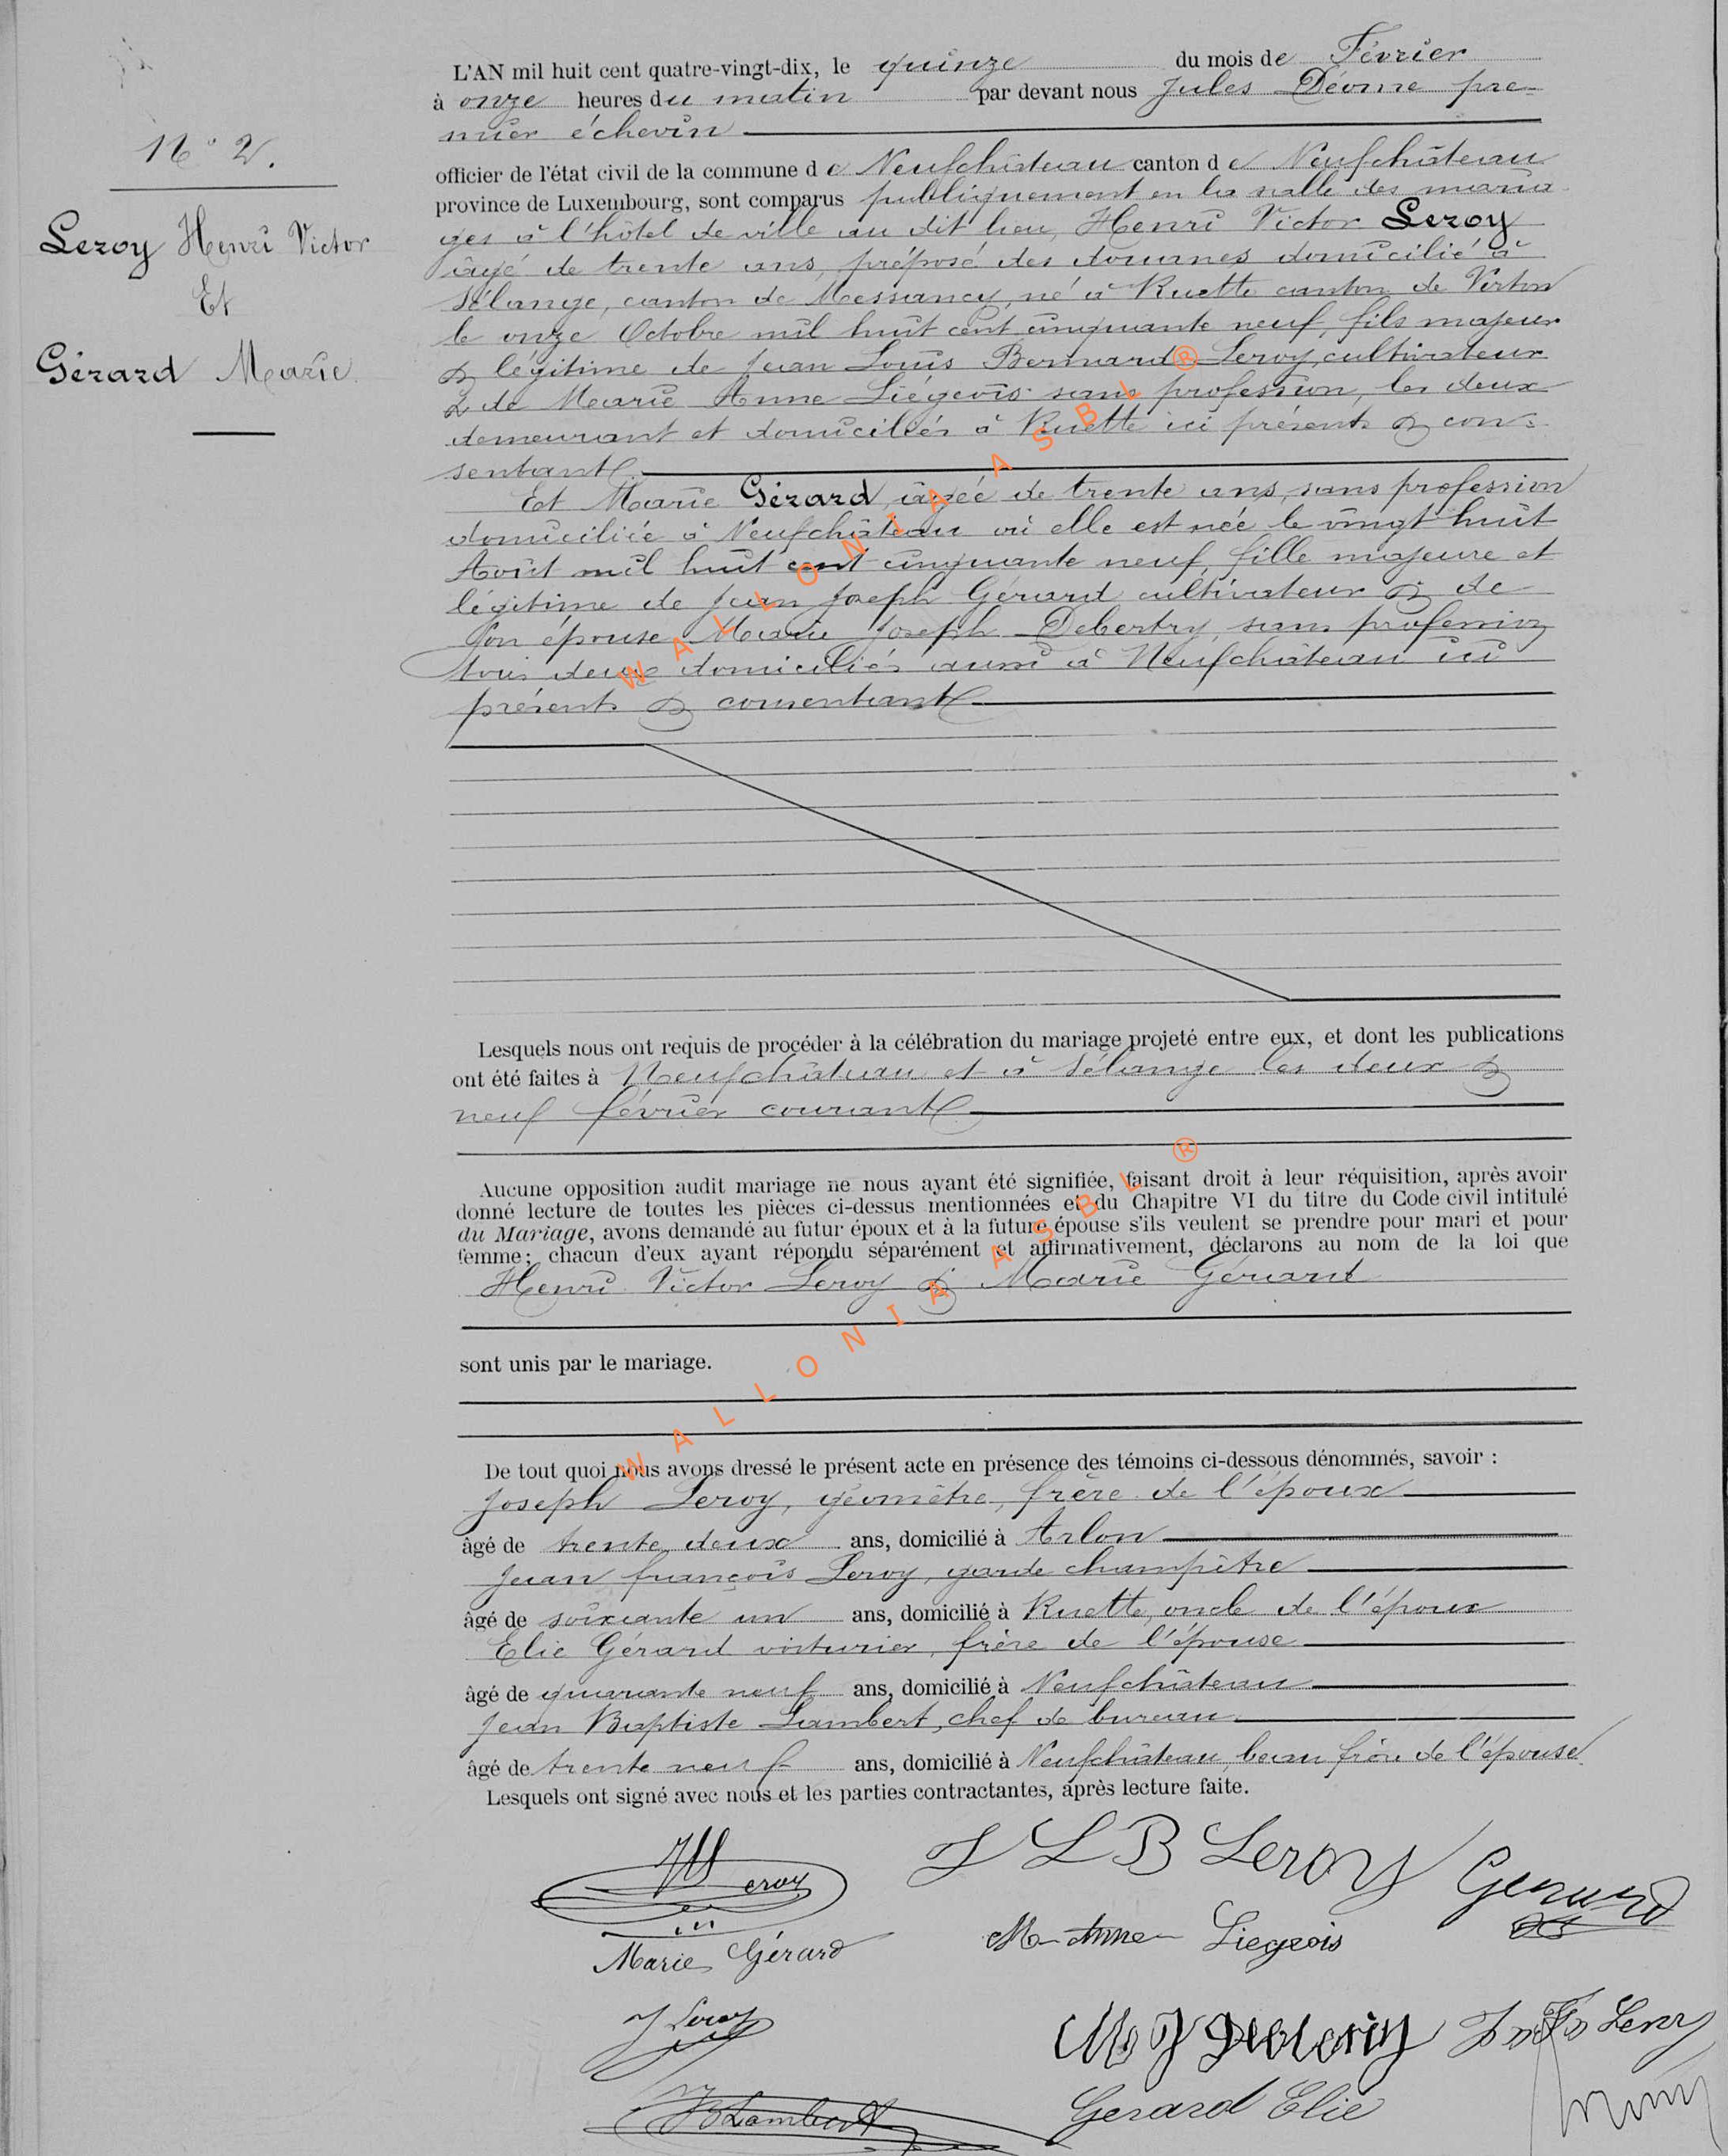 N° 2.
Leroy Henri Victor
Et
Gérard Marie
L'AN mil huit cent quatre-vingt-dix, le quinze du mois de Février
à onze heures du matin par devant nous Jules Déome pre-
mier échevin
officier de l'état civil de la commune de Neufchâteau canton de Neufchâteau
province de Luxembourg, sont comparus publiquement en la salle des maria-
ges à l'hôtel de ville au dit lieu, Henri Victor Leroy
âgé de trente ans, préposé des douanes domicilié à
Sélange, canton de Messancy, né à Ruette canton de Virton
le onze Octobre mil huit cent cinquante neuf, fils majeur
& légitime de Jean Louis Bernard Leroy, cultivateur
& de Marie Anne Liégeois sans profession, les deux
demeurant et domiciliés à Ruette ici présents & con-
sentant
Et Marie Gérard, âgée de trente ans, sans profession
domiciliée à Neufchâteau où elle est née le vingt huit
Août mil huit cent cinquante neuf, fille majeure et
légitime de Jean Joseph Gérard cultivateur & de
son épouse Marie Joseph Debertry, sans profession
tous deux domiciliés aussi à Neufchâteau ici
présents & consentant
Lesquels nous ont requis de procéder à la célébration du mariage projeté entre eux, et dont les publications
ont été faites à Neufchâteau et à Sélange les deux &
neuf février courant
Aucune opposition audit mariage ne nous ayant été signifiée, faisant droit à leur réquisition, après avoir
donné lecture de toutes les pièces ci-dessus mentionnées et du Chapitre VI du titre du Code civil intitulé
du Mariage, avons demandé au futur époux et à la future épouse s'ils veulent se prendre pour mari et pour
femme; chacun d'eux ayant répondu séparément et affirmativement, déclarons au nom de la loi que
Henri Victor Leroy & Marie Gérard
sont unis par le mariage.
De tout quoi nous avons dressé le présent acte en présence des témoins ci-dessous dénommés, savoir :
Joseph Leroy, géomètre, frère de l'époux
âgé de trente deux ans, domicilié à Arlon
Jean françois Leroy, garde champêtre
âgé de soixante un ans, domicilié à Ruette, oncle de l'époux
Elie Gérard voiturier, frère de l'épouse
âgé de quarante neuf ans, domicilié à Neufchâteau
Jean Baptiste Lambert, chef de bureau
âgé de trente neuf ans, domicilié à Neufchâteau, beau frère de l'épouse
Lesquels ont signé avec nous et les parties contractantes, après lecture faite.
Leroy
J L B Leroy
Gerard
Marie Gérard
M Anne Liegeois
J Leroy
M J Debertry
J Fs Leroy
JB Lambert
Gerard Elie
WALLONIA ASBL ®
WALLONIA ASBL ®